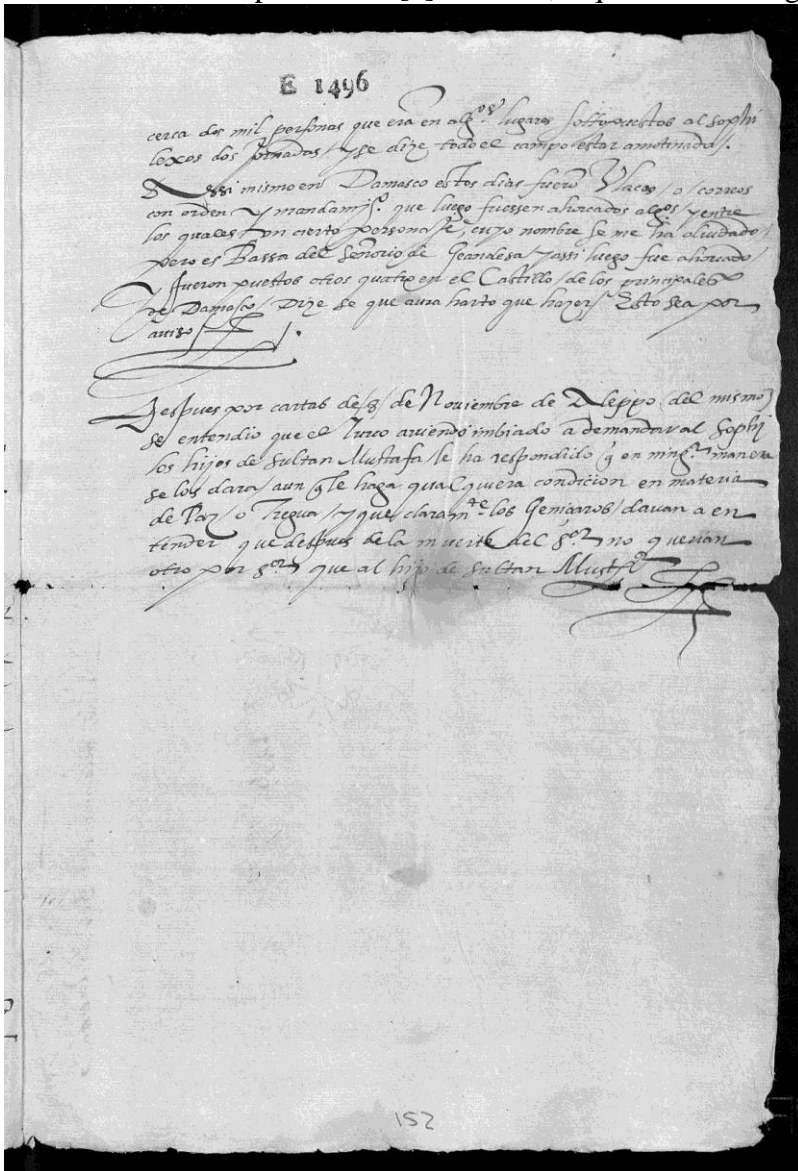 E 1496
cerca dos mil personas que erã en alg.os lugares sottopuestos al Sophi
lexos dos Jornadas / y se dize todo el campo estar amotinado /.
Assi mismo en Damasco estos dias fuerõ Vlacos / o / correos
con orden y mandami.o que luego fuessen ahorcados algos / y entre
los quales un cierto persona cuyo nombre se me ha oluidado /
pero es Bassa del Señorio de Geandesa / y assi luego fue ahorcado /
y fueron puestos otros quatro en el Castillo / de los principales
de Damasco / Dize se que aura harto que hazer / Esto sea por
auiso /.
Despues por cartas de /8/ de Nouiembre de Aleppo (del mismo)
se entendio que el Turco auiendo imbiado a demandar al Sophi
los hijos de Sultan Mustafa / le ha respondido q̃ en ning.a manera
se los dara / aun q̃ le haga qualquiera condicion en materia
de Paz / o Tregua / y que claram.te los Genicaros / dauan a en
tender que despues de la muerte del s.or no querian
otro por s.or que al hijo de Sultan Mustf.a
152